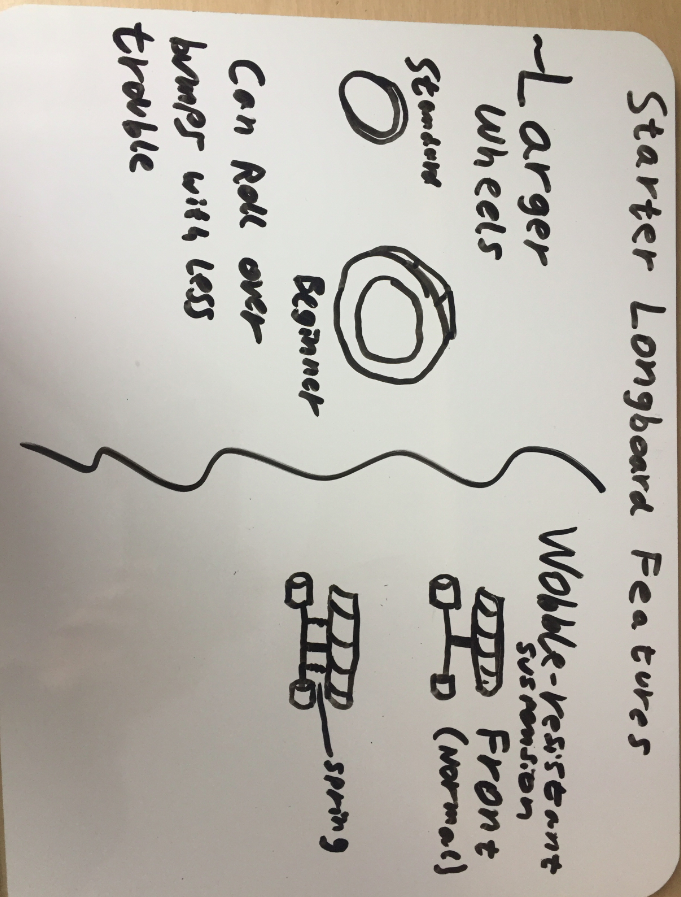 Starter Longboard Features
~Larger
Wheels
Standard
Beginner
Can Roll over
bumps with less
trouble
Wobble-resistant
suspension
Front
(Normal)
spring